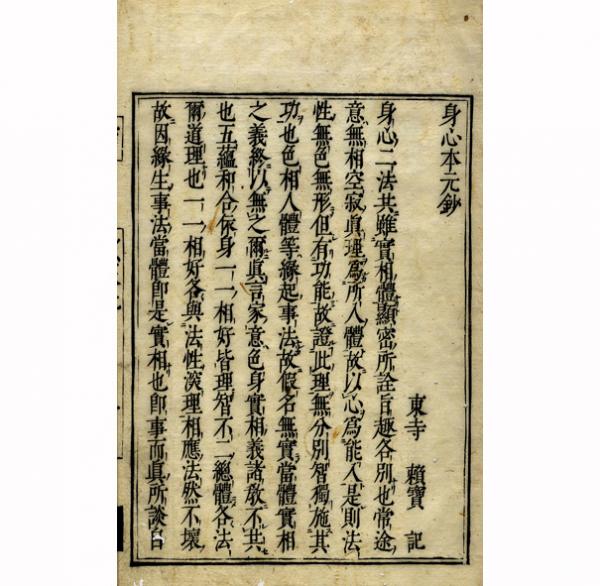 身心本元鈔
東寺 賴寶 記
身心二法共雖實相體顯密所詮旨趣各別也常途
意無相空寂眞理爲所入體故以心爲能入是則法
性無色無形但有功能故證此理無分別智獨施其
功也色相人體等緣起事法故假名無實當體實相
之義終以無之爾眞言家意色身實相義諸敎不共
也五蘊和合依身一一相好皆理智不二總體各法
爾道理也一一相好各與法性深理相應法然不壞
故因緣生事法當體卽是實相也卽事而眞所談自